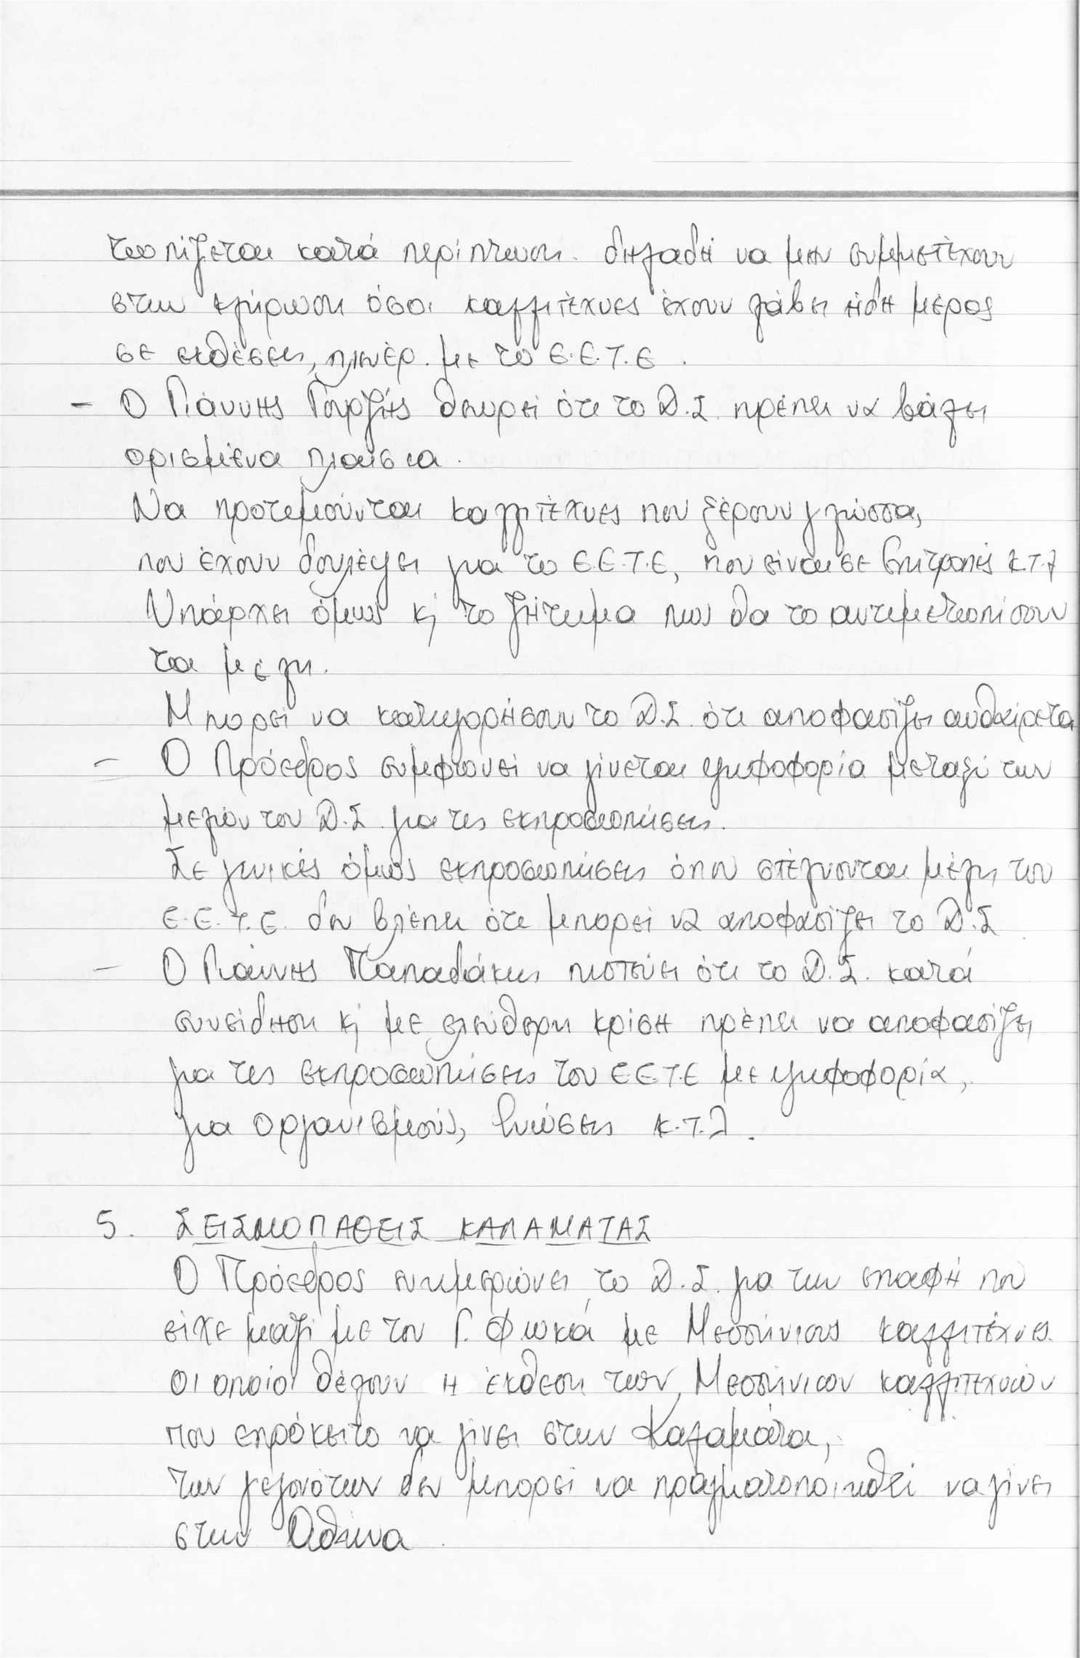 τωπίζεται κατά περίπτωση. δηλαδή να μην συμμετέχουν
στην κλήρωση όσοι καλλιτέχνες έχουν λάβει ήδη μέρος
σε εκθέσεις, με το Ε.Ε.Τ.Ε.
- Ο Γιάννης θεωρεί ότι το Δ.Σ. πρέπει να βάλει
ορισμένα πλαίσια.
Να προτιμούνται καλλιτέχνες που ξέρουν γλώσσα,
που έχουν δουλέψει για το Ε.Ε.Τ.Ε, που είναι σε Επιτροπές κ.τ.λ
Υπάρχει όμως κι το ζήτημα πως θα το αντιμετωπίσουν
τα μέλη.
Μπορεί να κατηγορήσουν το Δ.Σ. ότι αποφασίζει αυθαίρετα
- Ο Πρόεδρος συμφωνεί να γίνεται ψηφοφορία μεταξύ των
μελών του Δ.Σ. για τις εκπροσωπήσεις.
Σε γενικές όμως εκπροσωπήσεις όπου στέλνονται μέλη του
Ε.Ε.Τ.Ε. δεν βλέπει ότι μπορεί να αποφασίζει το Δ.Σ
- Ο Γιάννης Παπαδάκης πιστεύει ότι το Δ.Σ. κατά
συνείδηση κι με ελεύθερη κρίση πρέπει να αποφασίζει
για τις εκπροσωπήσεις του ΕΕΤΕ με ψηφοφορία,
για οργανισμούς, Ενώσεις κ.τ.λ.
5. ΣΕΙΣΜΟΠΑΘΕΙΣ ΚΑΛΑΜΑΤΑΣ
Ο Πρόεδρος ενημερώνει το Δ.Σ. για την επαφή που
είχε μαζί με τον Γ. Φωκά με Μεσσήνιους καλλιτέχνες.
Οι οποίοι θέλουν η έκθεση των Μεσσήνιων καλλιτεχνών
που επρόκειτο να γίνει στην Καλαμάτα,
των γεγονότων δεν μπορεί να πραγματοποιηθεί να γίνει
στην Αθήνα.